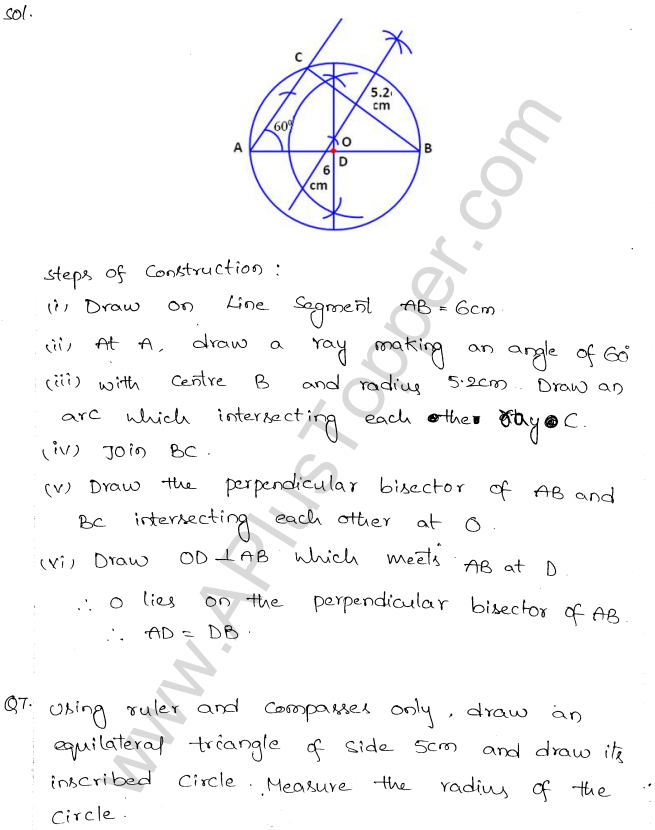 Sol.
C
5.2
cm
60°
A
O
B
D
6
cm
www.APlusTopper.com
Steps of Construction :
(i) Draw on Line Segment AB = 6cm.
(ii) At A, draw a ray making an angle of 60°
(iii) with Centre B and radius 5.2cm. Draw an
arc which intersecting each other ray C.
(iv) Join BC.
(v) Draw the perpendicular bisector of AB and
BC intersecting each other at O.
(vi) Draw OD ⊥ AB which meets AB at D.
∴ O lies on the perpendicular bisector of AB.
∴ AD = DB.
Q7. Using ruler and compasses only, draw an
equilateral triangle of side 5cm and draw its
inscribed circle. Measure the radius of the
Circle.